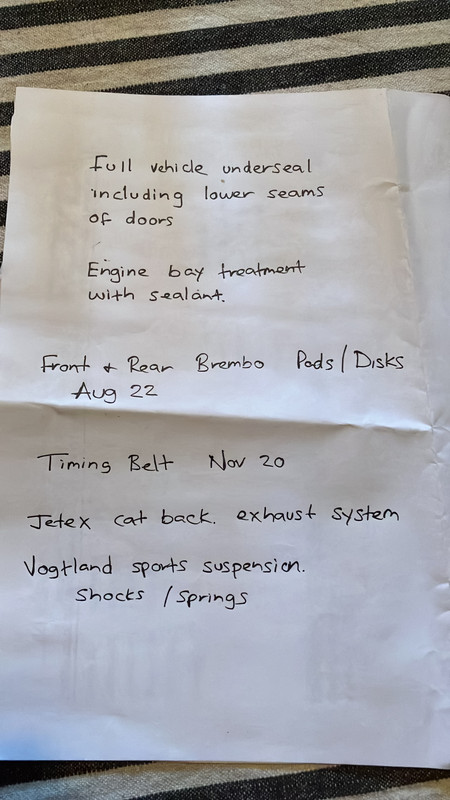 Full vehicle underseal
including lower seams
of doors
Engine bay treatment
with sealant.
Front & Rear Brembo Pads/Disks
Aug 22
Timing Belt Nov 20
Jetex cat back. exhaust system
Vogtland sports suspension.
Shocks / Springs